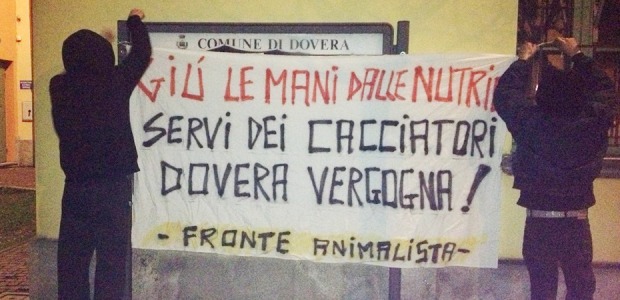 COMUNE DI DOVERA
GIÚ LE MANI DALLE NUTRIE
SERVI DEI CACCIATORI
DOVERA VERGOGNA!
- FRONTE ANIMALISTA -